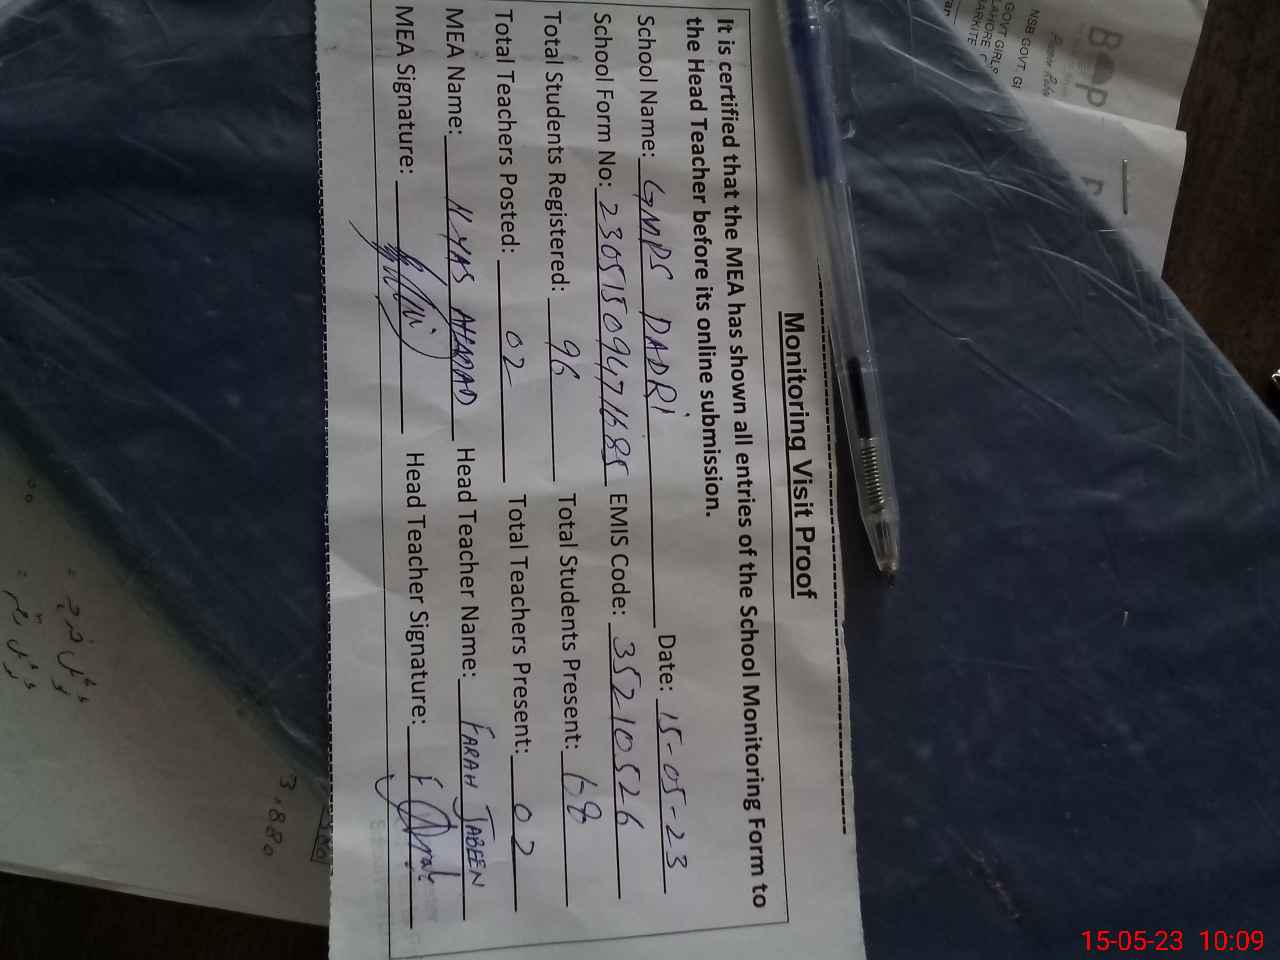 Monitoring Visit Proof
It is certified that the MEA has shown all entries of the School Monitoring Form to
the Head Teacher before its online submission.
School Name: GMPS DADRI Date: 15-05-23
School Form No: 23051509471685 EMIS Code: 35210526
Total Students Registered: 96 Total Students Present: 68
Total Teachers Posted: 02 Total Teachers Present: 02
MEA Name: ILYAS AHMAD Head Teacher Name: FARAH JABEEN
MEA Signature: Head Teacher Signature:
BOP
NSB GOVT, GI
GOVT GIRLS
LAHORE
MARKITE
3,880
15-05-23 10:09